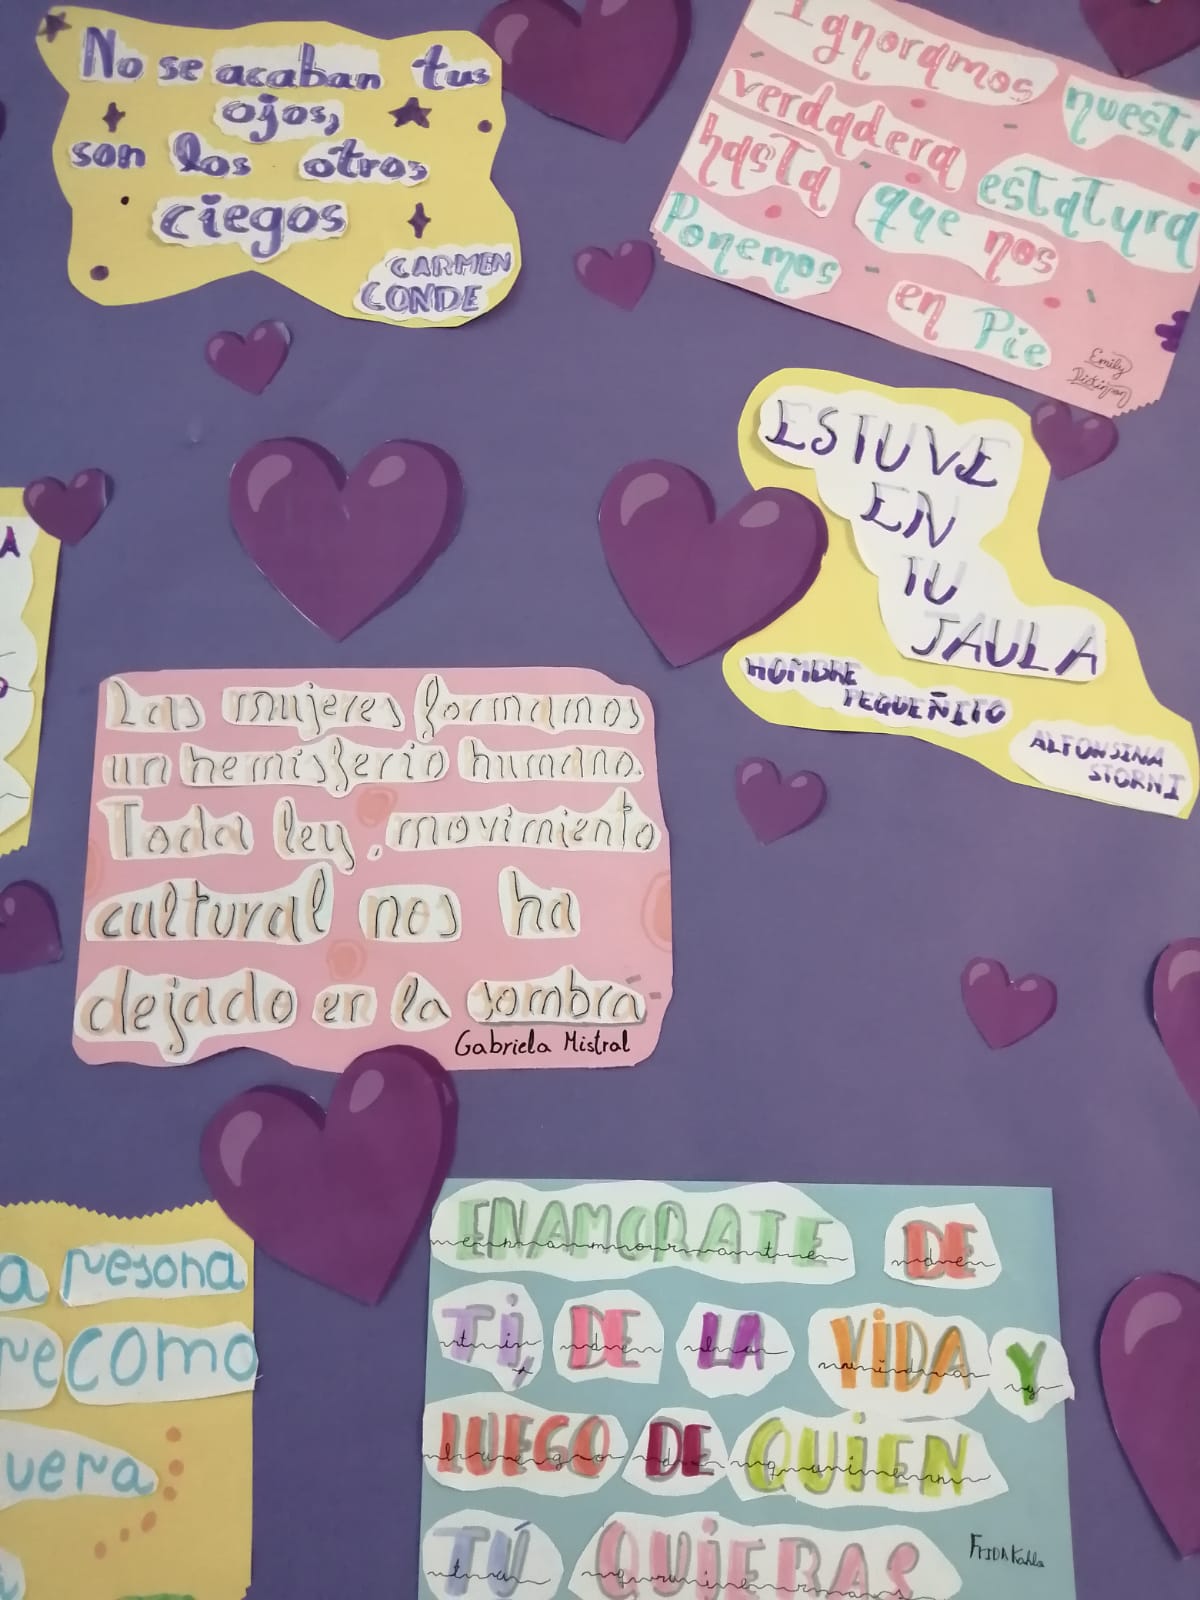 No se acaban tus
ojos,
son los otros
ciegos
CARMEN
CONDE
Ignoramos nuestr
verdadera estatura
hasta que nos
Ponemos en Pie
Emily
Dickinson
ESTUVE
EN
TU
JAULA
HOMBRE
PEQUEÑITO
ALFONSINA
STORNI
A
Las mujeres formamos
un hemisferio humano.
Toda ley, movimiento
cultural nos ha
dejado en la sombra
Gabriela Mistral
a persona
re como
uera
ENAMORATE DE
TI, DE LA VIDA Y
LUEGO DE QUIEN
TÚ QUIERAS
FRIDA Kahlo